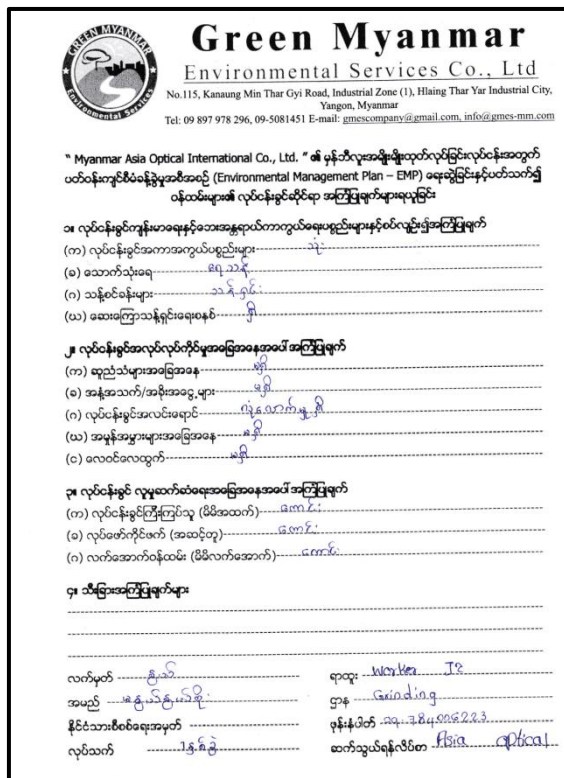 GREEN MYANMAR
Environmental Services
Green Myanmar
Environmental Services Co., Ltd
No.115, Kanaung Min Thar Gyi Road, Industrial Zone (1), Hlaing Thar Yar Industrial City,
Yangon, Myanmar
Tel: 09 897 978 296, 09-5081451 E-mail: gmescompany@gmail.com, info@gmes-mm.com
" Myanmar Asia Optical International Co., Ltd. " ၏ မှန်ဘီလူးအမျိုးမျိုးထုတ်လုပ်ခြင်းလုပ်ငန်းအတွက်
ပတ်ဝန်းကျင်စီမံခန့်ခွဲမှုအစီအစဉ် (Environmental Management Plan – EMP) ရေးဆွဲခြင်းနှင့်ပတ်သက်၍
ဝန်ထမ်းများ၏ လုပ်ငန်းခွင်ဆိုင်ရာ အကြံပြုချက်များရယူခြင်း
၁။ လုပ်ငန်းခွင်ကျန်းမာရေးနှင့်ဘေးအန္တရာယ်ကာကွယ်ရေးပစ္စည်းများနှင့်စပ်လျဉ်း၍အကြံပြုချက်
(က) လုပ်ငန်းခွင်အကာအကွယ်ပစ္စည်းများ သုံး
(ခ) သောက်သုံးရေ ရေသန့်
(ဂ) သန့်စင်ခန်းများ သန့်ရှင်း
(ဃ) ဆေးကြောသန့်ရှင်းရေးစနစ် ရှိ
၂။ လုပ်ငန်းခွင်အလုပ်လုပ်ကိုင်မှုအခြေအနေအပေါ်အကြံပြုချက်
(က) ဆူညံသံများအခြေအနေ မရှိ
(ခ) အနံ့အသက်/အခိုးအငွေ့များ မရှိ
(ဂ) လုပ်ငန်းခွင်အလင်းရောင် လုံလောက်မှု ရှိ
(ဃ) အမှုန်အမွှားများအခြေအနေ မရှိ
(င) လေဝင်လေထွက် မရှိ
၃။ လုပ်ငန်းခွင် လူမှုဆက်ဆံရေးအခြေအနေအပေါ်အကြံပြုချက်
(က) လုပ်ငန်းခွင်ကြီးကြပ်သူ (မိမိအထက်) ကောင်း
(ခ) လုပ်ဖော်ကိုင်ဖက် (အဆင့်တူ) ကောင်း
(ဂ) လက်အောက်ဝန်ထမ်း (မိမိလက်အောက်) ကောင်း
၄။ သီးခြားအကြံပြုချက်များ
လက်မှတ် နွယ် ရာထူး Worker J2
အမည် ဌာန Grinding
နိုင်ငံသားစိစစ်ရေးအမှတ် ဖုန်းနံပါတ်
လုပ်သက် ၁နှစ်ခွဲ ဆက်သွယ်ရန်လိပ်စာ Asia optical